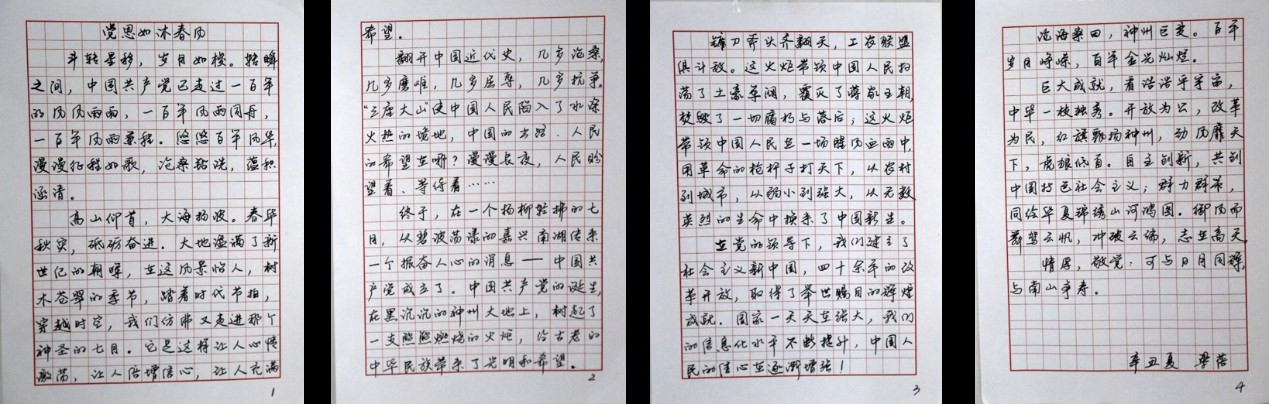 党恩如沐春风
斗转星移，岁月如梭。转瞬
之间，中国共产党已走过一百年
的风风雨雨，一百年风雨同舟，
一百年风雨兼程。悠悠百年风华，
漫漫征程如歌，沧桑砥洗，蕴积
涵清。
高山仰首，大海扬波。春华
秋实，砥砺奋进。大地溢满了新
世纪的朝晖，在这风景怡人，树
木苍翠的季节，踏着时代节拍，
穿越时空，我们仿佛又走进那个
神圣的七月。它是这样让人心情
激荡，让人倍增信心，让人充满
1
希望。
翻开中国近代史，几多沧桑，
几多磨难，几多屈辱，几多抗争。
“三座大山”使中国人民陷入了水深
火热的境地，中国的出路、人民
的希望在哪？漫漫长夜，人民盼
望着、等待着……
终于，在一个杨柳轻拂的七
月，从碧波荡漾的嘉兴南湖传来
一个振奋人心的消息——中国共
产党成立了。中国共产党的诞生，
在黑沉沉的神州大地上，树起了
一支熊熊燃烧的火炬，给古老的
中华民族带来了光明和希望。
2
镰刀斧头齐翻天，工农联盟
俱斗敌。这火炬带领中国人民扫
荡了土豪军阀，覆灭了蒋家王朝，
焚毁了一切腐朽与落后；这火炬
带领中国人民在一场腥风血雨中，
用革命的枪杆子打天下，从农村
到城市，从弱小到强大，从无数
英烈的生命中换来了中国新生。
在党的领导下，我们建立了
社会主义新中国，四十余年的改
革开放，取得了举世瞩目的辉煌
成就。国家一天天在强大，我们
的信息化水平不断提升，中国人
民的信心在逐渐增强！
3
沧海桑田，神州巨变。百年
岁月峥嵘，百年金光灿烂。
巨大成就，看浩浩乎宇宙，
中华一枝独秀。开放为公，改革
为民，红旗飘扬神州，劲风靡天
下，虎狼低首。自主创新，共创
中国特色社会主义；群力群策，
同绘华夏锦绣山河鸿图。御风而
翥驾云帆，冲破云端，志在高天。
情厚，敬党：可与日月同辉，
与南山争寿。
辛丑夏
4